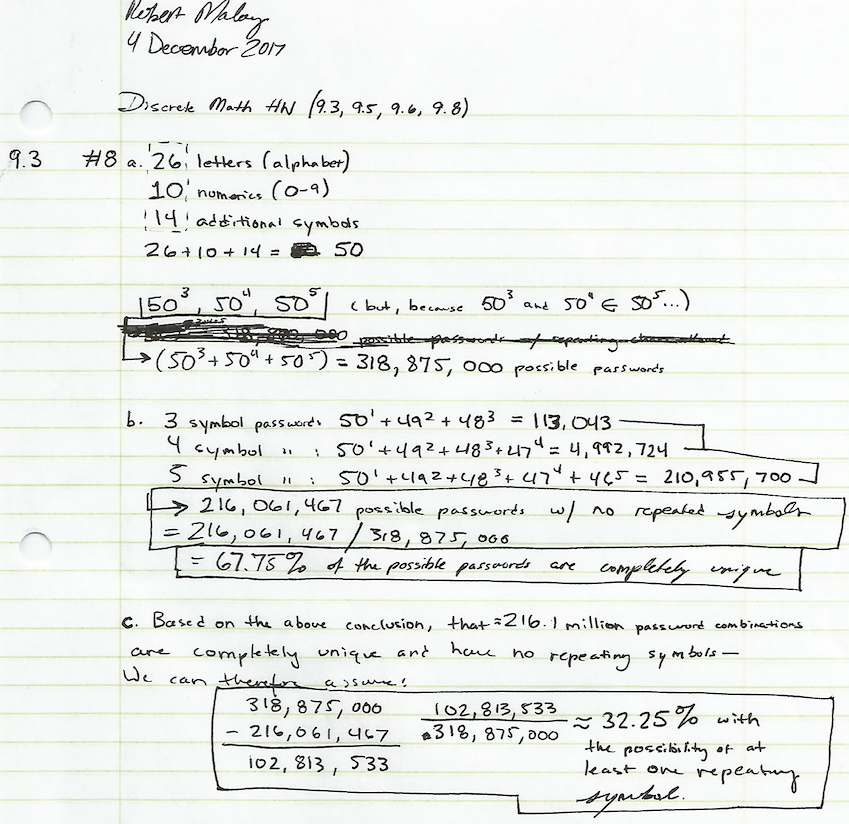 Robert Malay
4 December 2017
Discrete Math HW (9.3, 9.5, 9.6, 9.8)
9.3 #8 a. 26 letters (alphabet)
10 numerics (0-9)
14 additional symbols
26+10+14 = 50
50³, 50⁴, 50⁵ (but, because 50³ and 50⁴ ∈ 50⁵...)
possible passwords w/ repeating
→ (50³+50⁴+50⁵) = 318,875,000 possible passwords
b. 3 symbol passwords 50¹+49²+48³ = 113,043
4 symbol " : 50¹+49²+48³+47⁴ = 4,992,724
5 symbol " : 50¹+49²+48³+47⁴+46⁵ = 210,955,700
→ 216,061,467 possible passwords w/ no repeated symbols
= 216,061,467 / 318,875,000
= 67.75% of the possible passwords are completely unique
c. Based on the above conclusion, that ≈216.1 million password combinations
are completely unique and have no repeating symbols—
We can therefore assume:
318,875,000 102,813,533 ≈ 32.25% with
- 216,061,467 318,875,000 the possibility of at
102,813,533 least one repeating
symbol.